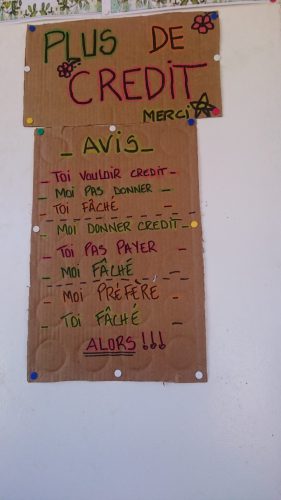 PLUS DE
CREDIT
MERCI
_ AVIS _
_ TOI VOULOIR CREDIT _
_ MOI PAS DONNER _
_ TOI FÂCHÉ _
_ MOI DONNER CREDIT _
_ TOI PAS PAYER _
_ MOI FÂCHÉ _
_ MOI PRÉFÈRE _
_ TOI FÂCHÉ _
ALORS !!!